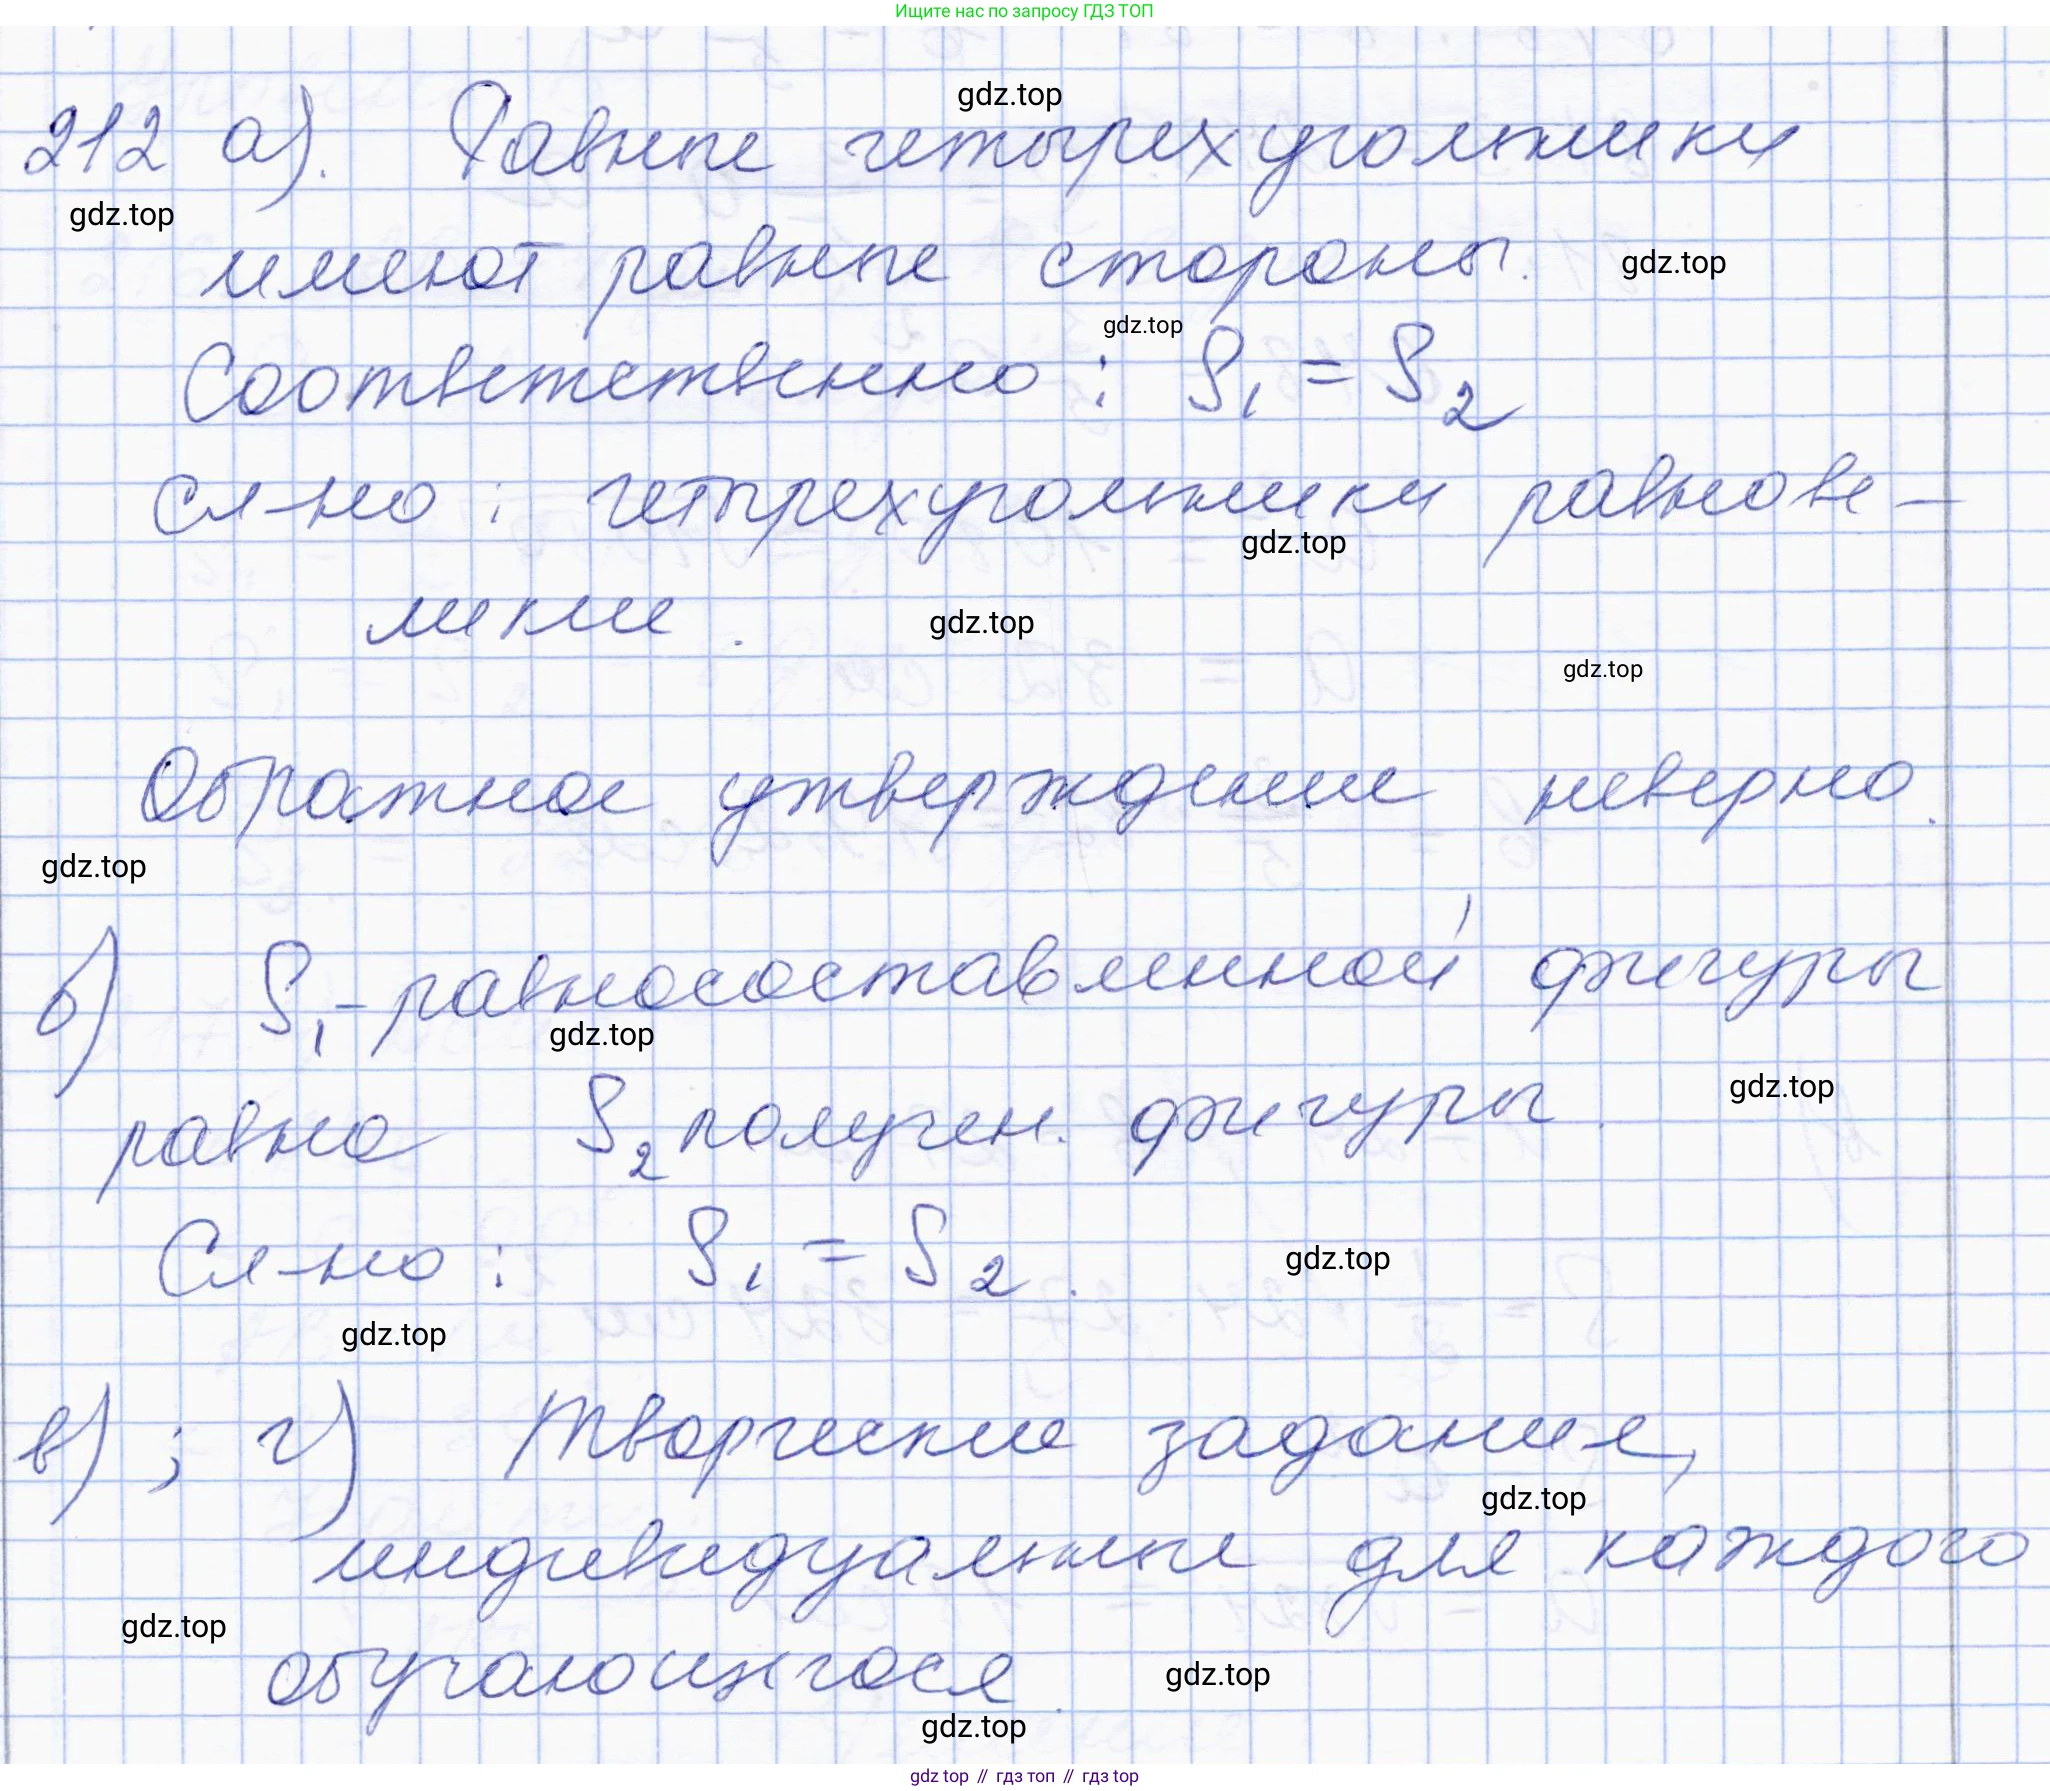 Ищите нас по запросу ГДЗ ТОП
gdz.top
212 а). Равные четырехугольники
gdz.top
имеют равные стороны.
gdz.top
gdz.top
Соответственно: S₁ = S₂
сл-но: четырехугольники равнове-
gdz.top
ликие.
gdz.top
gdz.top
Обратное утверждение неверно.
gdz.top
б) S₁ - равносоставленной фигуры
gdz.top
gdz.top
равна S₂ получен. фигуры.
Сл-но: S₁ = S₂.
gdz.top
gdz.top
в) ; г) Творческие задание,
gdz.top
индивидуальные для каждого
gdz.top
обучающегося.
gdz.top
gdz.top
gdz top // гдз топ // гдз top